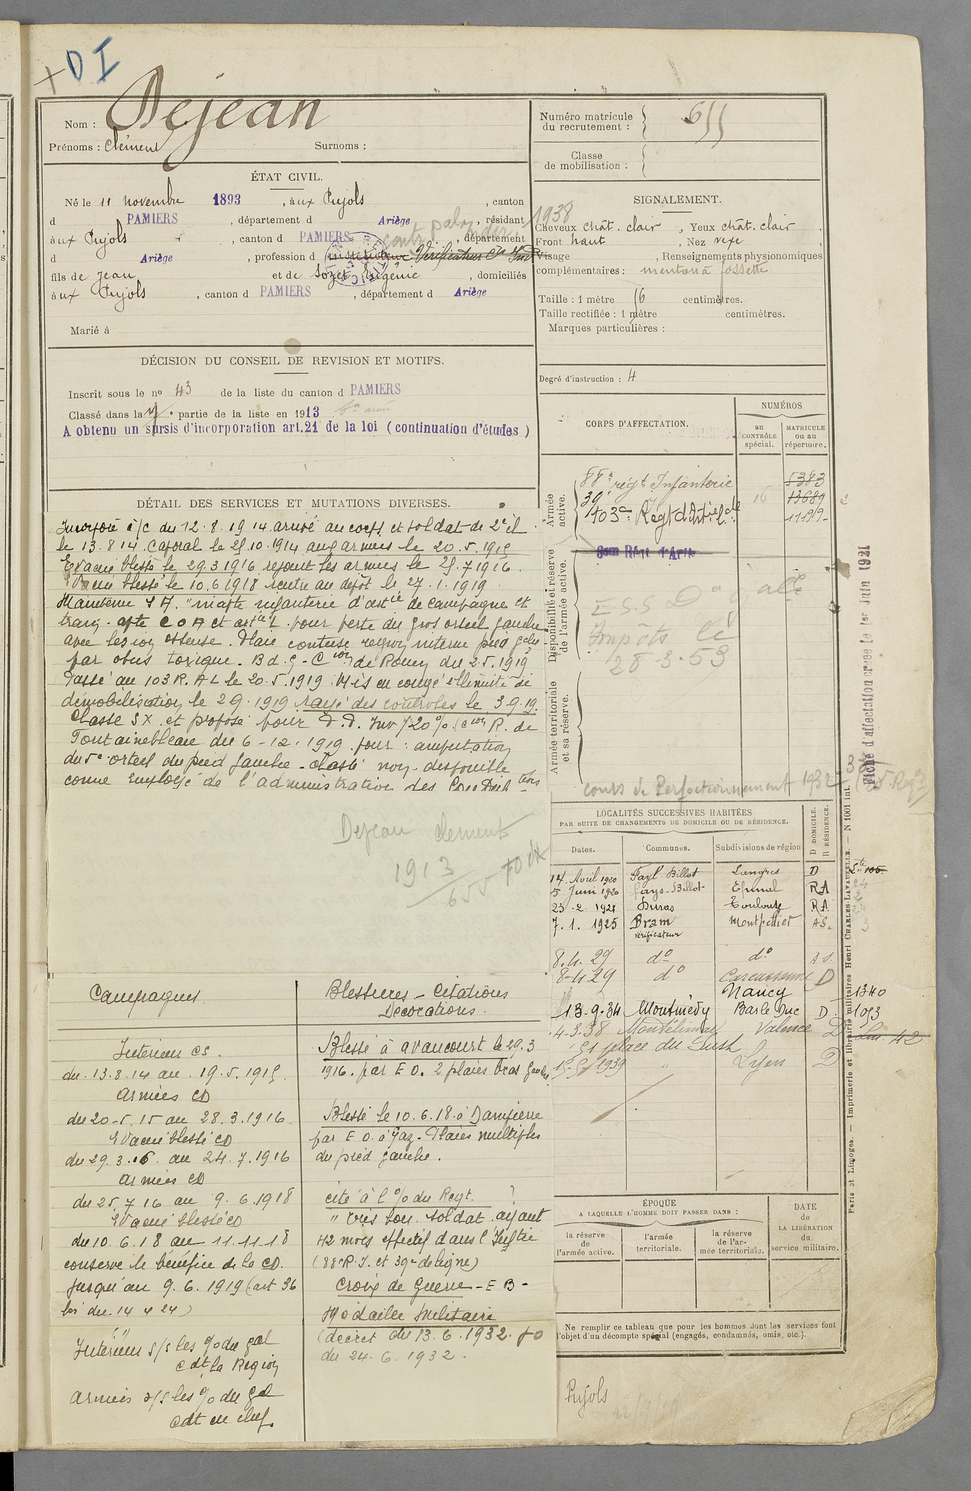 D I
Nom : Dejean
Prénoms : Clément Surnoms :
ÉTAT CIVIL.
Né le 11 novembre 1893, aux Pujols, canton
d PAMIERS, département d Ariège, résidant
aux Pujols, canton d PAMIERS, département
d Ariège, profession d
fils de Jean et de Eugénie, domiciliés
aux Pujols, canton d PAMIERS, département d Ariège
Marié à
DÉCISION DU CONSEIL DE REVISION ET MOTIFS.
Inscrit sous le nº 43 de la liste du canton d PAMIERS
Classé dans la 4e partie de la liste en 1913
A obtenu un sursis d'incorporation art.21 de la loi ( continuation d'études )
DÉTAIL DES SERVICES ET MUTATIONS DIVERSES.
Incorporé à/c du 12.8.1914 arrivé au corps et soldat de 2e cl.
le 13.8.14. Caporal le 25.10.1914 aux armées le 20.5.1915
Evacué blessé le 29.3.1916 rejoint les armées le 25.7.1916.
Evacué blessé le 10.6.1918 rentre au dépôt le 27.1.1919.
Maintenu S A. inapte infanterie d'artie de campagne et
perte du gros orteil gauche
avec lésion osseuse. Plaie contuse région interne pied gche
par obus toxique. de Rouen du 2.5.1919
Passé au 103 R.A.L le 20.5.1919. Mis en congé illimité de
démobilisation le 2.9.1919 rayé des controles le 3.9.19.
Classe SX et proposé pour Inv 20% R. de
Fontainebleau du 6-12-1919 pour : amputation
du 5e orteil du pied gauche - Classé non-disponible
comme Employé de l'administration des
Dejean Clement
1913
655
Campagnes
Intérieur CS.
du 13.8.14 au 19.5.1915
armées CD
du 20-5.15 au 28.3.1916
Evacué blessé CD
du 29.3.16 au 24.7.1916
armées CD
du 25.7.16 au 9.6.1918
Evacué blessé CD
du 10.6.18 au 11.11.18
conserve le bénéfice de la CD.
jusqu'au 9.6.1919 (art 36
loi du 14 4 24)
Intérieur s/s les % du gal
Cdt la Région
Armées s/s les % du gal
Cdt en chef.
Blessures - Citations
Décorations.
Blessé à avaucourt le 29.3
1916. par E O. 2 plaies bras gauche
Blessé le 10.6.18 à Dampierre
par E O. à gaz - Plaies multiples
du pied gauche.
cité à l % du Regt.
" très bon soldat ayant
42 mois effectif dans l'Inftie
(88e R.I. et 39e de ligne)
Croix de Guerre - E B -
Médaille Militaire
(décret du 13.6.1932. JO
du 24.6.1932.
Numéro matricule
du recrutement : 655
Classe
de mobilisation :
SIGNALEMENT.
1938
Cheveux chât. clair, Yeux chât. clair
Front haut, Nez vexe
Visage, Renseignements physionomiques
complémentaires : menton à fossette
Taille : 1 mètre centimètres.
Taille rectifiée : 1 mètre centimètres.
Marques particulières :
Degré d'instruction : 4
CORPS D'AFFECTATION.
NUMÉROS
au CONTRÔLE spécial.
MATRICULE ou au répertoire.
Armée active.
88e regt Infanterie 5383
39e 16 13689
103e Regt d'Art. L.
Disponibilité et réserve de l'armée active.
Impôts le
28-3-53
Armée territoriale et sa réserve.
cours de Perfectionnement 1932
LOCALITÉS SUCCESSIVES HABITÉES
PAR SUITE DE CHANGEMENTS DE DOMICILE OU DE RÉSIDENCE.
D DOMICILE. R RÉSIDENCE.
Dates. Communes. Subdivisions de région
14 Avril 1920 Fayl Billot Langres D
5 Juin 1920 Fays-Billot Epinal RA
23-2 1921 Duras Toulouse RA
7.1.1925 Bram Montpellier AS.
vérificateur
8.4.29 do do
8-4-29 do Carcassonne D
Nancy
13-9-34 Montmédy Bar le Duc D 1340
1093
4-3.38 Montélimar Valence D
Lyon D
ÉPOQUE
A LAQUELLE L'HOMME DOIT PASSER DANS :
DATE de la LIBÉRATION du service militaire.
la réserve de l'armée active.
l'armée territoriale.
la réserve de l'armée territoriale.
Ne remplir ce tableau que pour les hommes dont les services font
l'objet d'un décompte spécial (engagés, condamnés, omis, etc.).
Pujols
Fiche d'affectation créée le 1er Juin 1921
Paris et Limoges. — Imprimerie et librairie militaires Henri CHARLES-LAVAUZELLE. — N 1001 int.